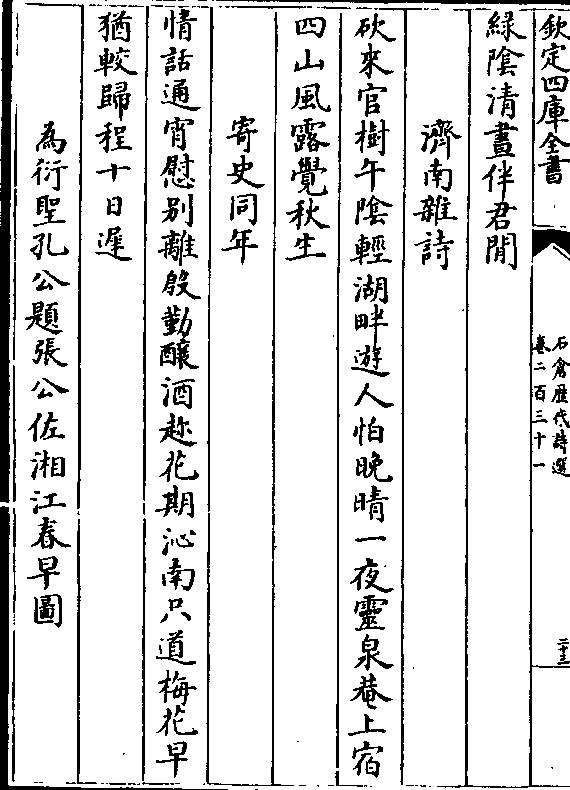 欽定四庫全書
石倉歷代詩選
卷二百三十一
二十三
緑陰清晝伴君閒
濟南雜詩
砍來官樹午陰輕湖畔遊人怕晚晴一夜靈泉菴上宿
四山風露覺秋生
寄史同年
情話通宵慰别離殷勤釀酒趂花期沁南只道梅花早
猶較歸程十日遲
為衍聖孔公題張公佐湘江春早圖